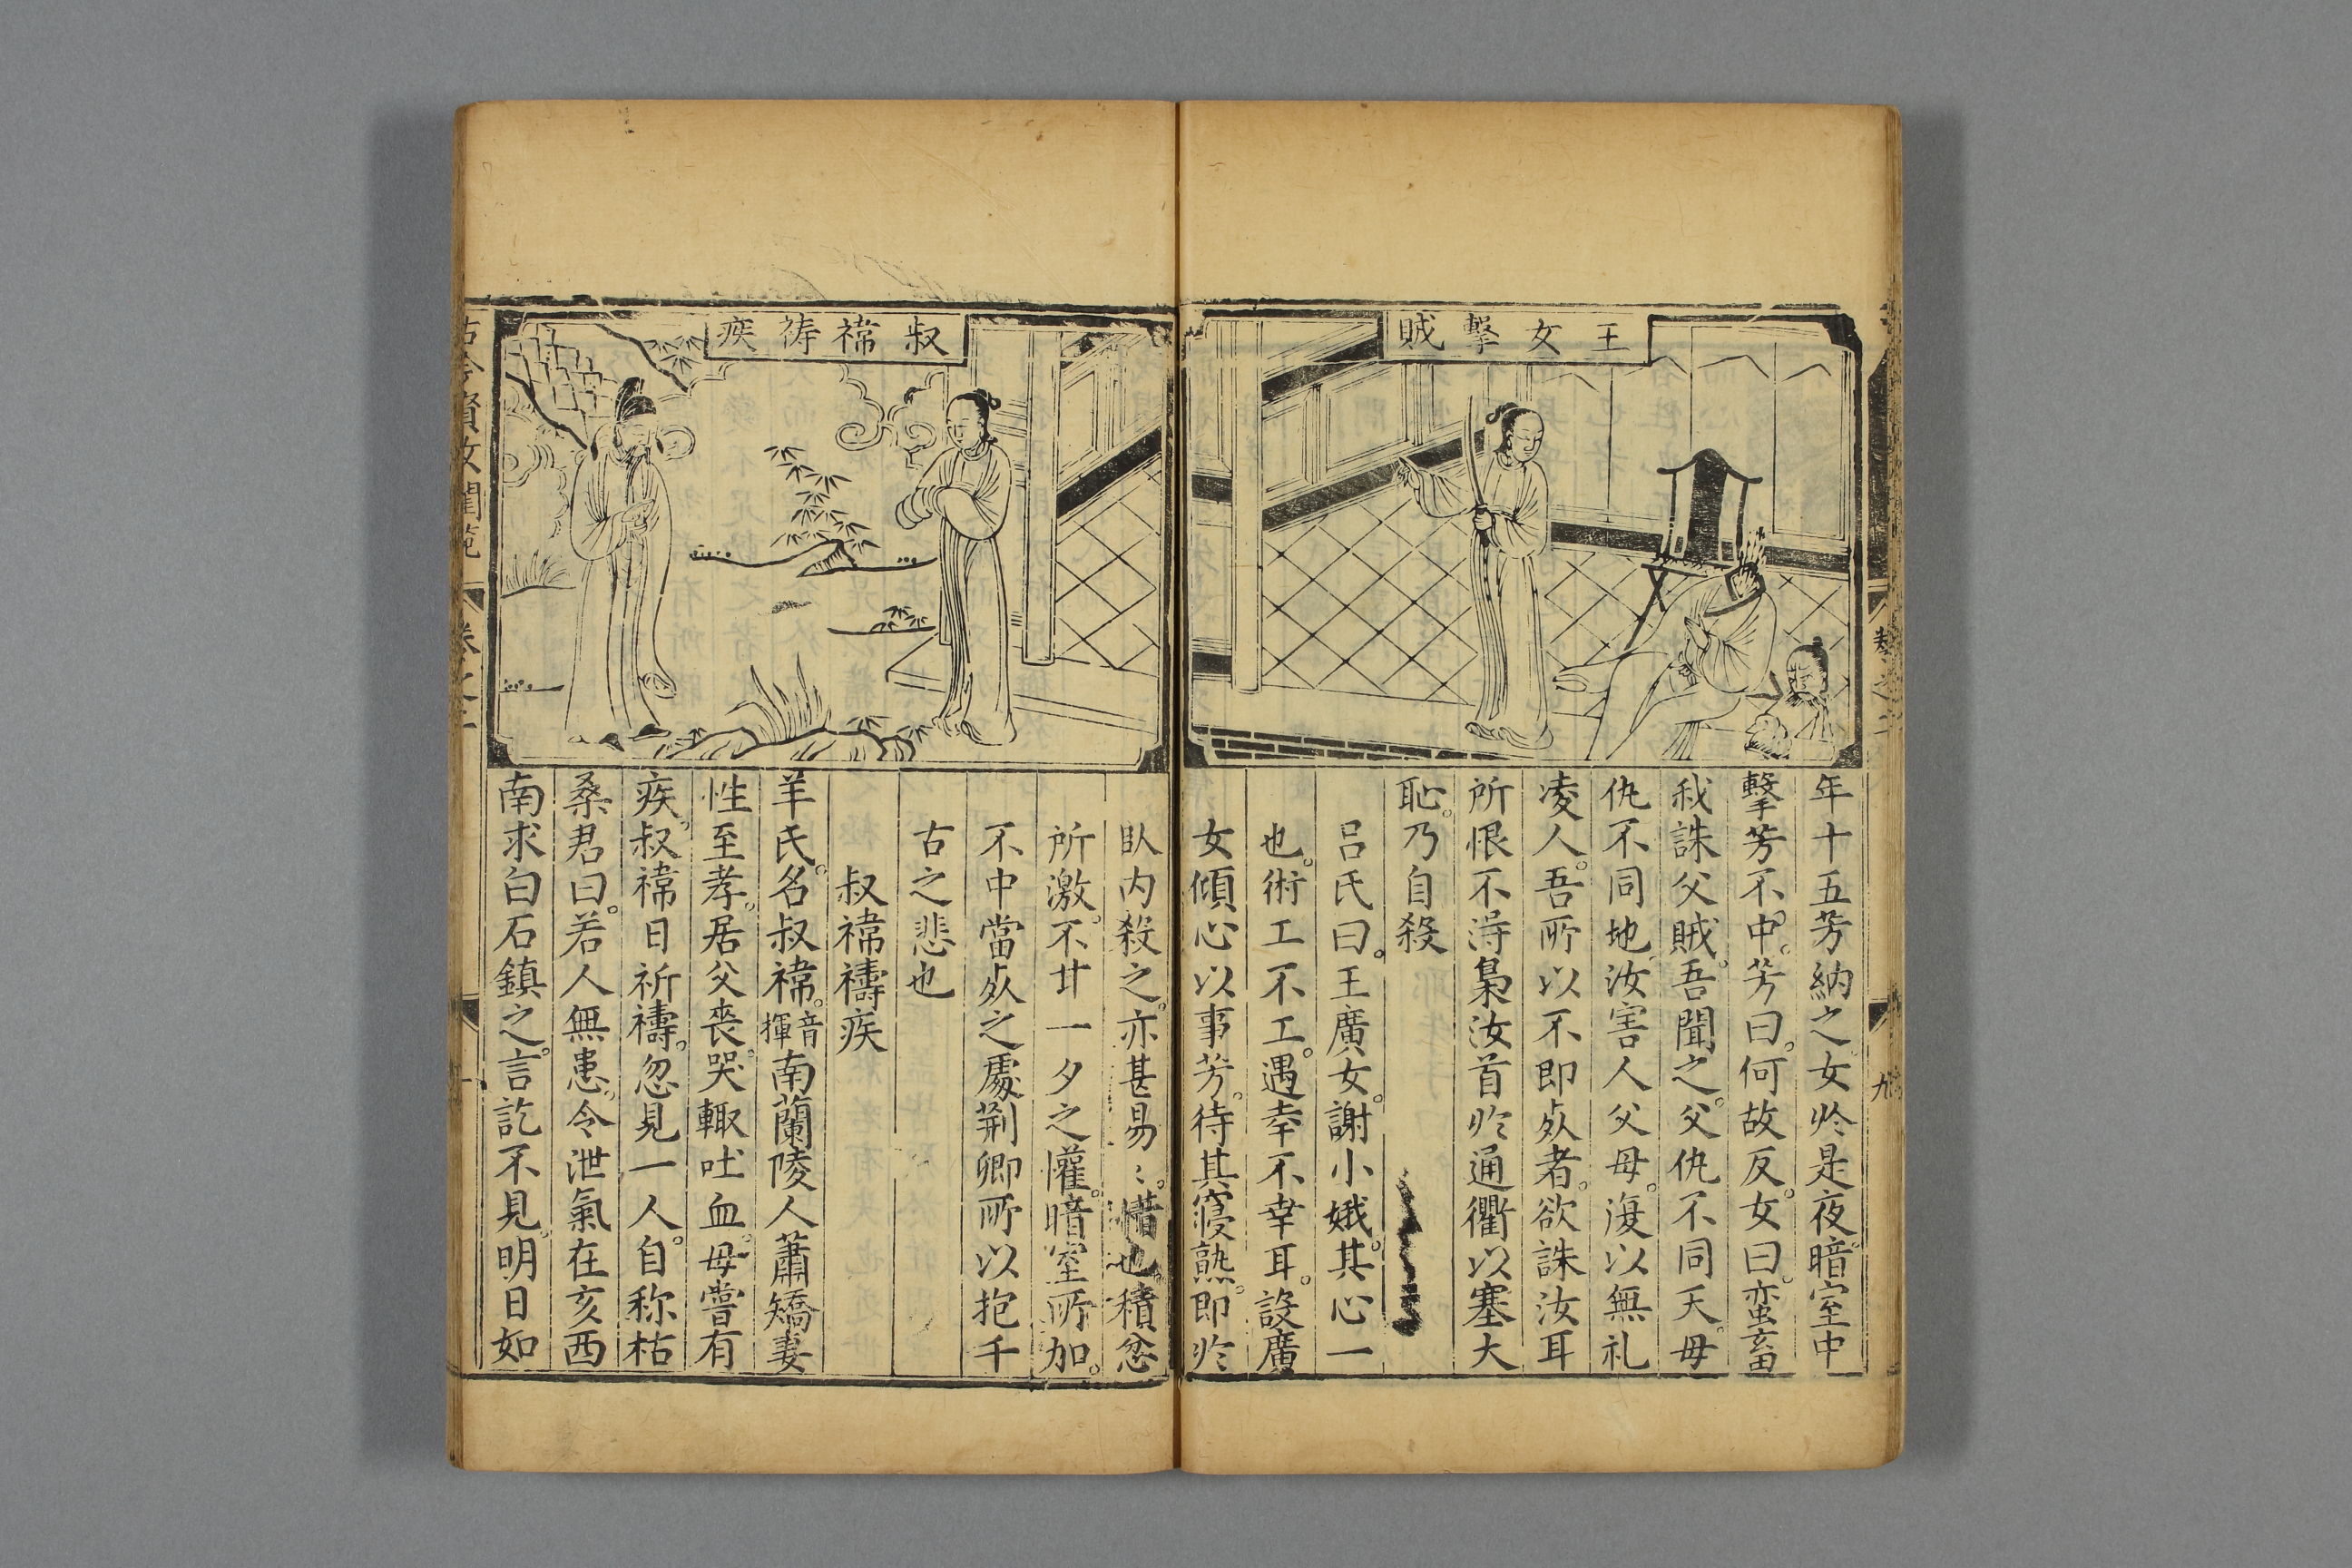 王女擊賊
年十五芳納之女扵是夜暗室中
擊芳不中芳曰何故反女曰蛮畜
我誅父賊吾聞之父仇不同天母
仇不同地汝害人父母復以無礼
凌人吾所以不即死者欲誅汝耳
所恨不淂梟汝首扵通衢以塞大
恥乃自殺
吕氏曰王廣女謝小娥其心一
也術工不工遇幸不幸耳設廣
女傾心以事芳待其寢熟即扵
九
叔褘祷疾
臥内殺之亦甚易〻惜也積忿
所激不甘一夕之懽暗室所加
不中當死之處荆卿所以抱千
古之悲也
叔褘禱疾
羊氏名叔褘音揮南蘭陵人蕭矯妻
性至孝居父喪哭輙吐血母嘗有
疾叔褘日祈禱忽見一人自称枯
桑君曰若人無患令泄氣在亥西
南求白石鎮之言訖不見明日如
古今賢女閨範
卷之二